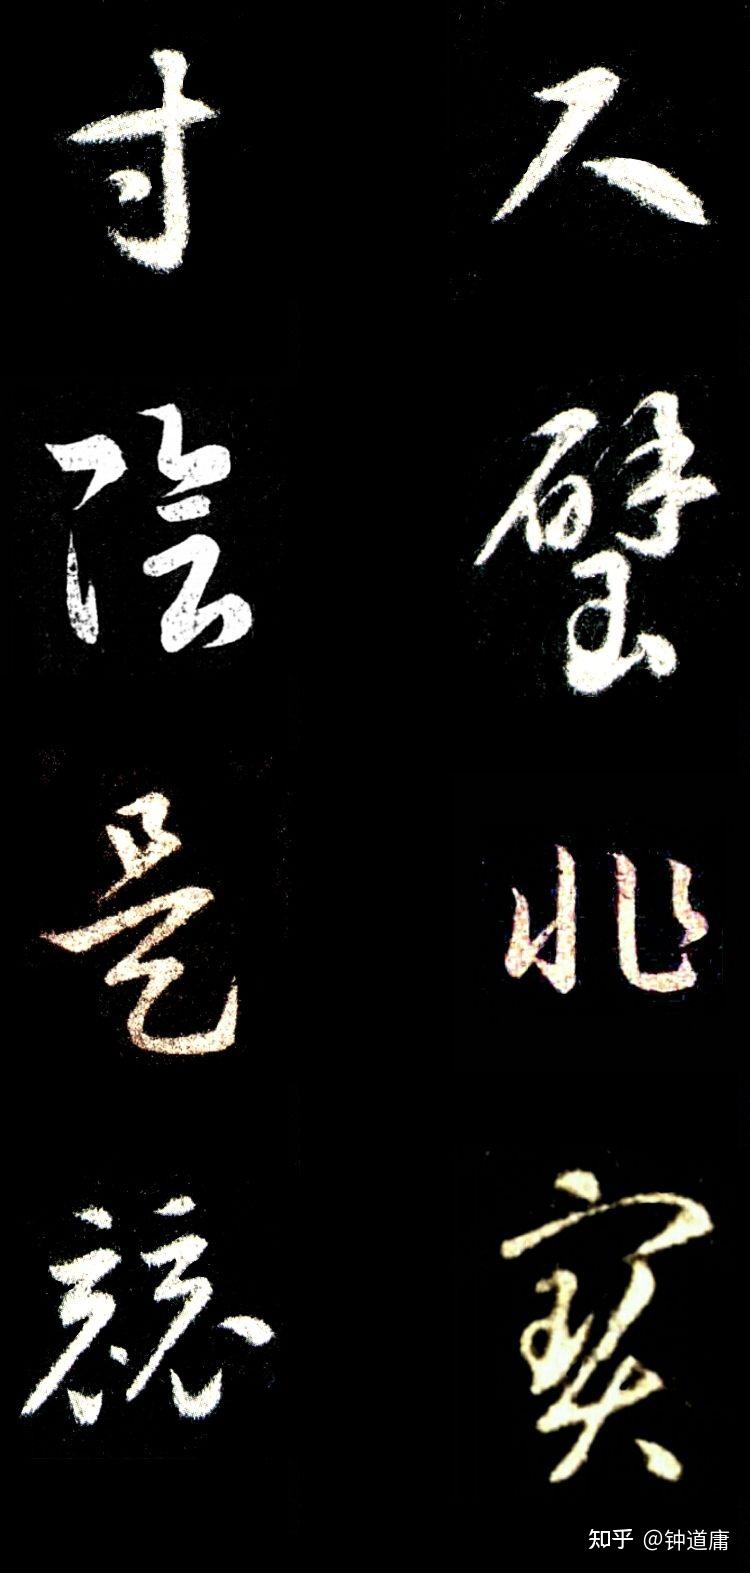 尺璧非寶
寸陰是競
知乎 @钟道庸